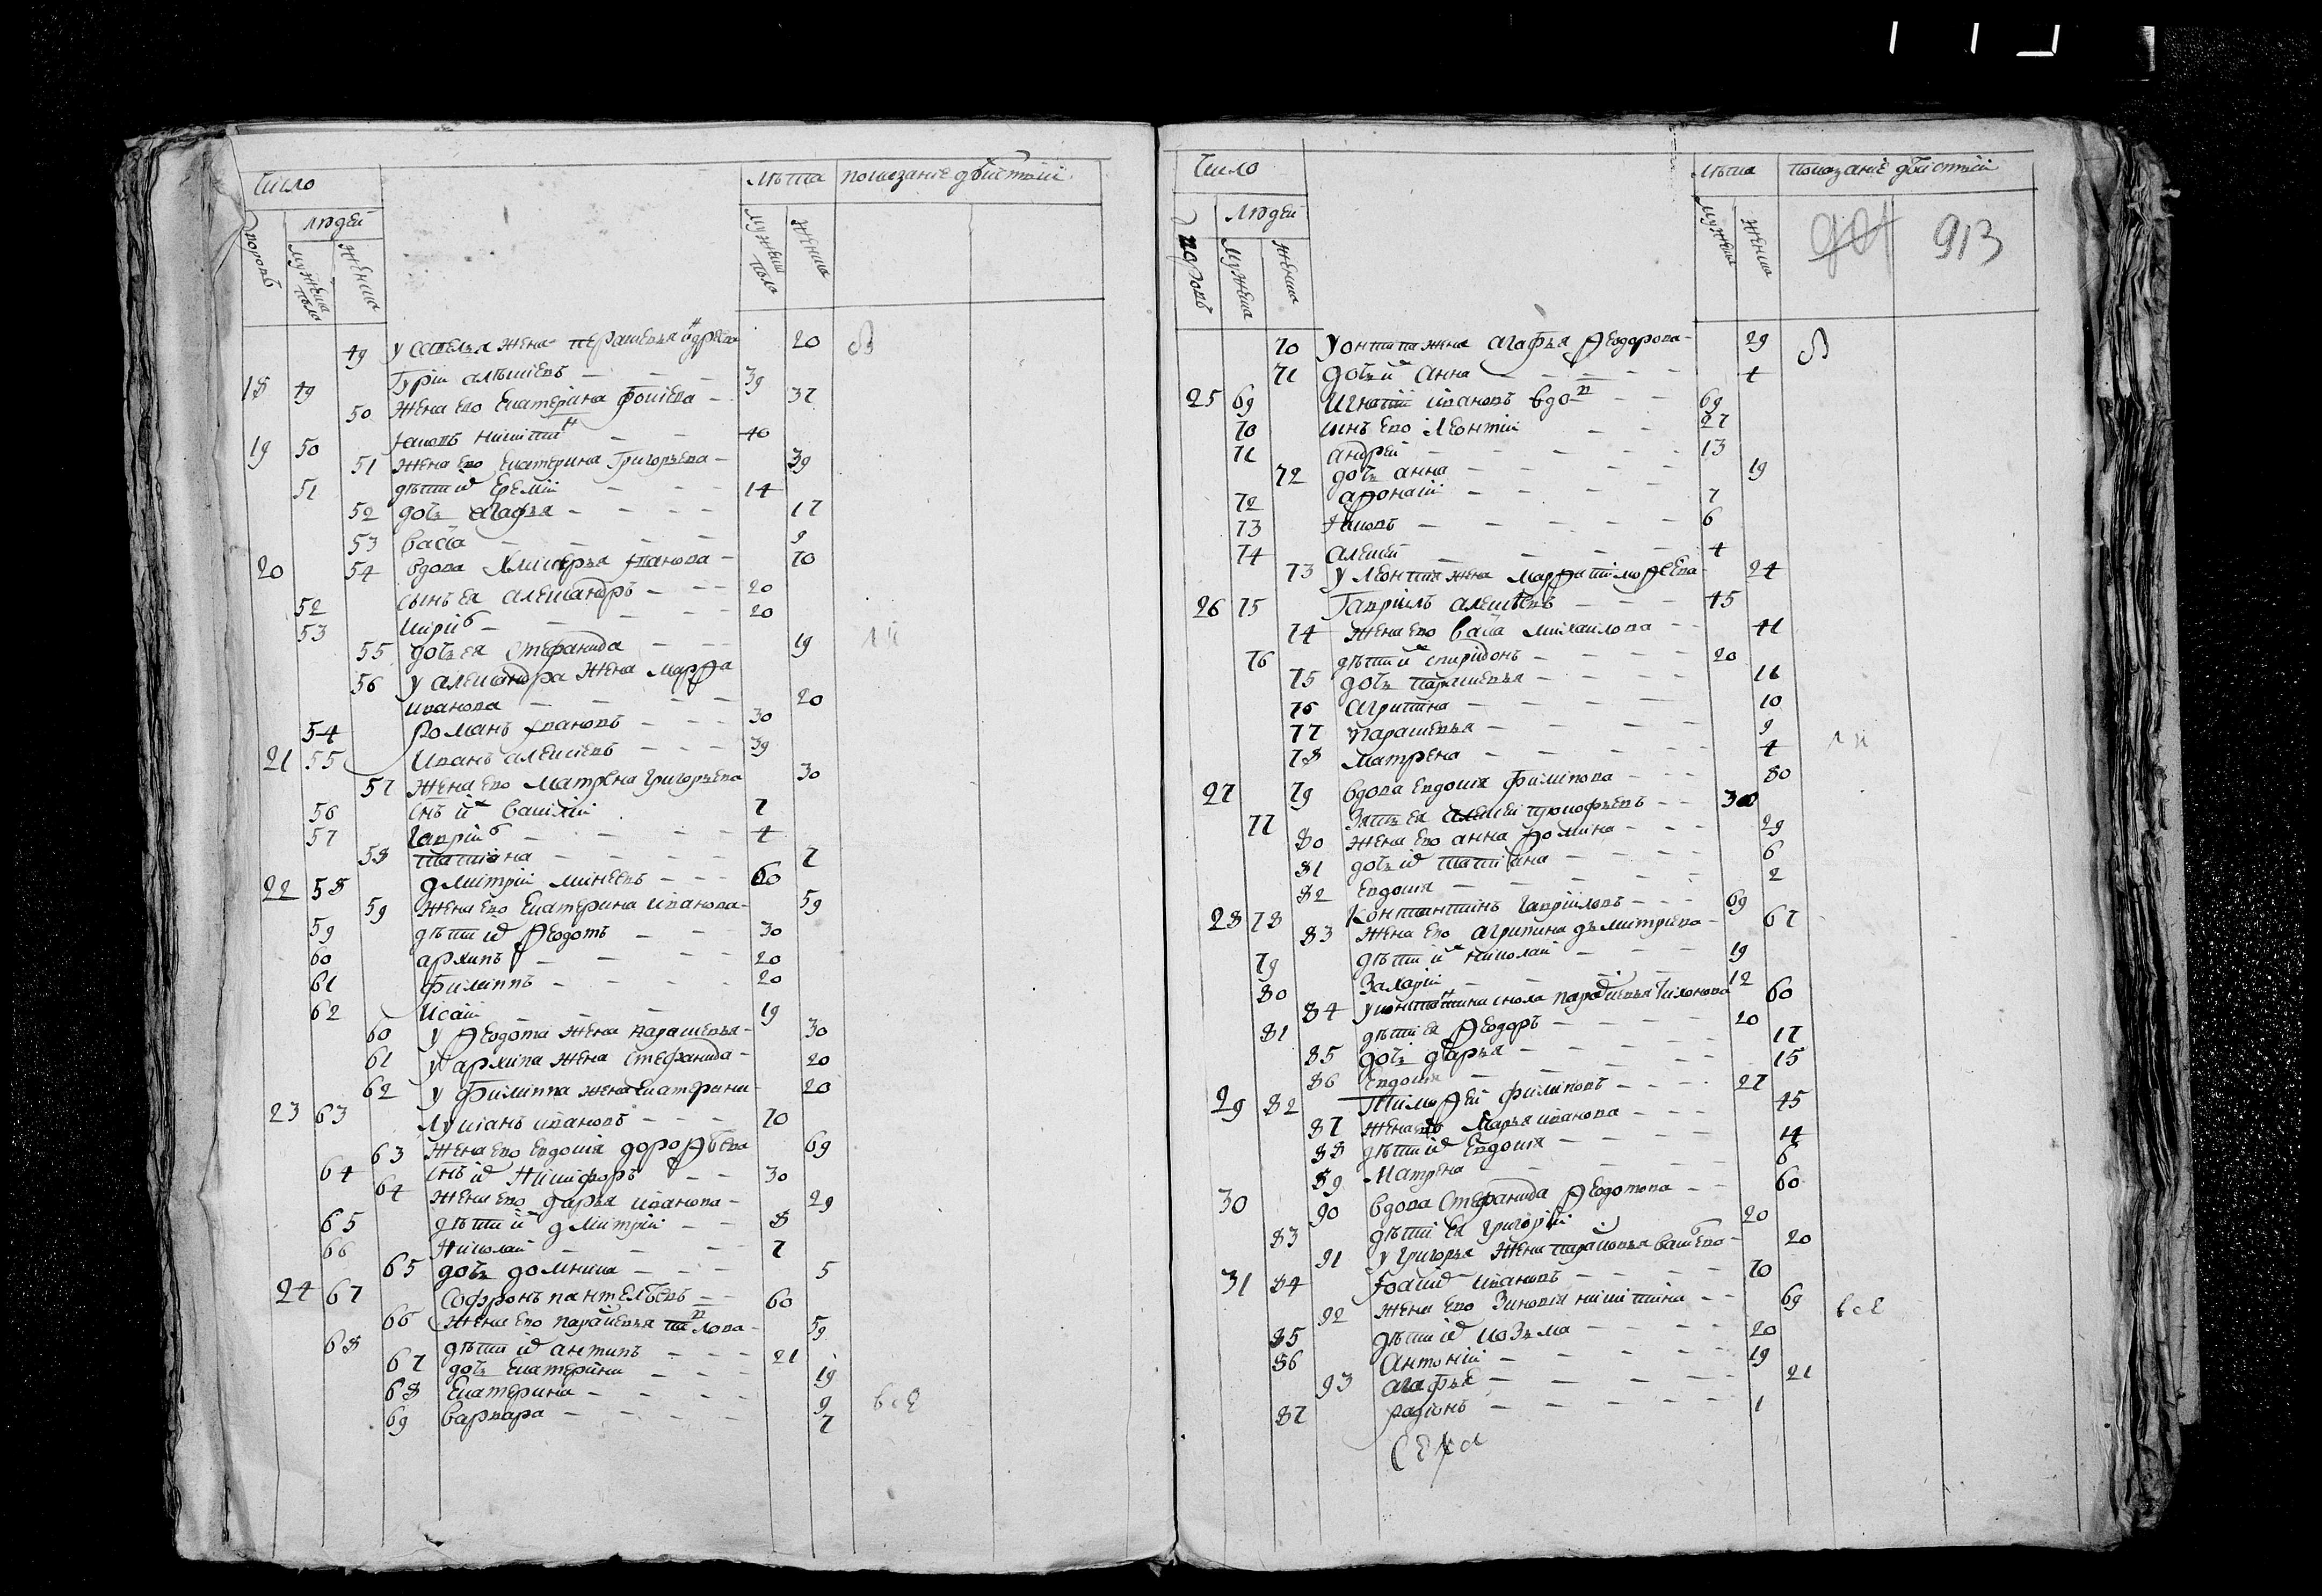 Число
Лѣта показанїе дѣйствїй
людей
дворовъ
мужеска пола
женска
мужеска пола
женска
49 у савелья жена парасковья 20
18 49 Гурїй алексѣевъ 39
50 жена ево Екатерина 37
19 50 Iаковъ никитин 40
51 жена ево Екатерина Григорьева 39
51 дѣти их Еремїй 14
52 дочь агафья 17
53 васса 9
20 54 вдова 70
52 сынъ ея алеѯандръ 20
53 20
55 дочь ея Стефанида 19
56 у алеѯандра жена марѳа
иванова 20
54 Романъ iвановъ 30
21 55 Иванъ алексѣевъ 39
57 жена ево матрена григорьева 30
56 снъ их василїй 7
57 гаврїил 4
58 татїана 7
22 58 дмитрїй минеевъ 60
59 жена ево Екатерина иванова 59
59 дѣти их ѳедотъ 30
60 архипъ 20
61 филиппъ 20
62 Исай 19
60 у ѳедота жена парасковья 30
61 у архипа жена Стефанида 20
62 у филиппа жена Екатерина 20
23 63 Лукїанъ ивановъ 70
63 жена ево Евдокїя дороѳѣева 69
64 снъ их Никифоръ 30
64 жена ево дарья иванова 29
65 дѣти их дмитрїй 8
66 Николай 7
65 дочь домника 5
24 67 Софронъ пантелѣевъ 60
66 жена ево парасковья 59
68 дѣти их антипъ 21
67 дочь Екатерина 19
68 Екатерина 9
69 варвара 7
всѣ
Число
лѣта показанїе дѣйствїй
людей
дворовъ
мужеска
женска
мужеска
женска
913
70 у антипа жена агафья ѳеодорова 29
71 дочь их анна 4
25 69 Игнатїй ивановъ вдов 69
70 сынъ ево леонтїй 27
71 андрей 13
72 дочь анна 19
72 аѳонасїй 7
73 Iаковъ 6
74 алексѣй 4
73 у леонтїя жена марѳа тимоѳеева 24
26 75 Гаврїилъ алексѣевъ 45
74 жена ево васса михаилова 41
76 дѣти их спиридонъ 20
75 дочь парасковья 16
76 агрипина 10
77 парасковья 9
78 матрена 4
27 79 вдова Евдокїя филипова 80
77 зять ея алексѣй 30
80 жена ево анна ѳомина 29
81 дочь их татїана 6
82 Евдокїя 2
28 78 Константинъ гавриловъ 69
83 жена ево агрипина дьмитрїева 67
79 дѣти их николай 19
80 Захарїй 12
84 у константина сноха парасковья тихонова 60
81 дѣти ея ѳеодоръ 20
85 дочь дарья 17
86 Евдокїя 15
29 82 Тимоѳей филиповъ 27
87 жена ево Марья иванова 45
88 дѣти их Евдокїя 14
89 Матрена 6
30 90 вдова Стефанида ѳедотова 60
83 дѣти ея григорїй 20
91 у григорья жена парасковья 20
31 84 Iоаким ивановъ 70
92 жена ево Зиновїя никитина 69
85 дѣти их козьма 20
86 Антонїй 19
93 агафья 21
87 родїонъ 1
всѣ
села